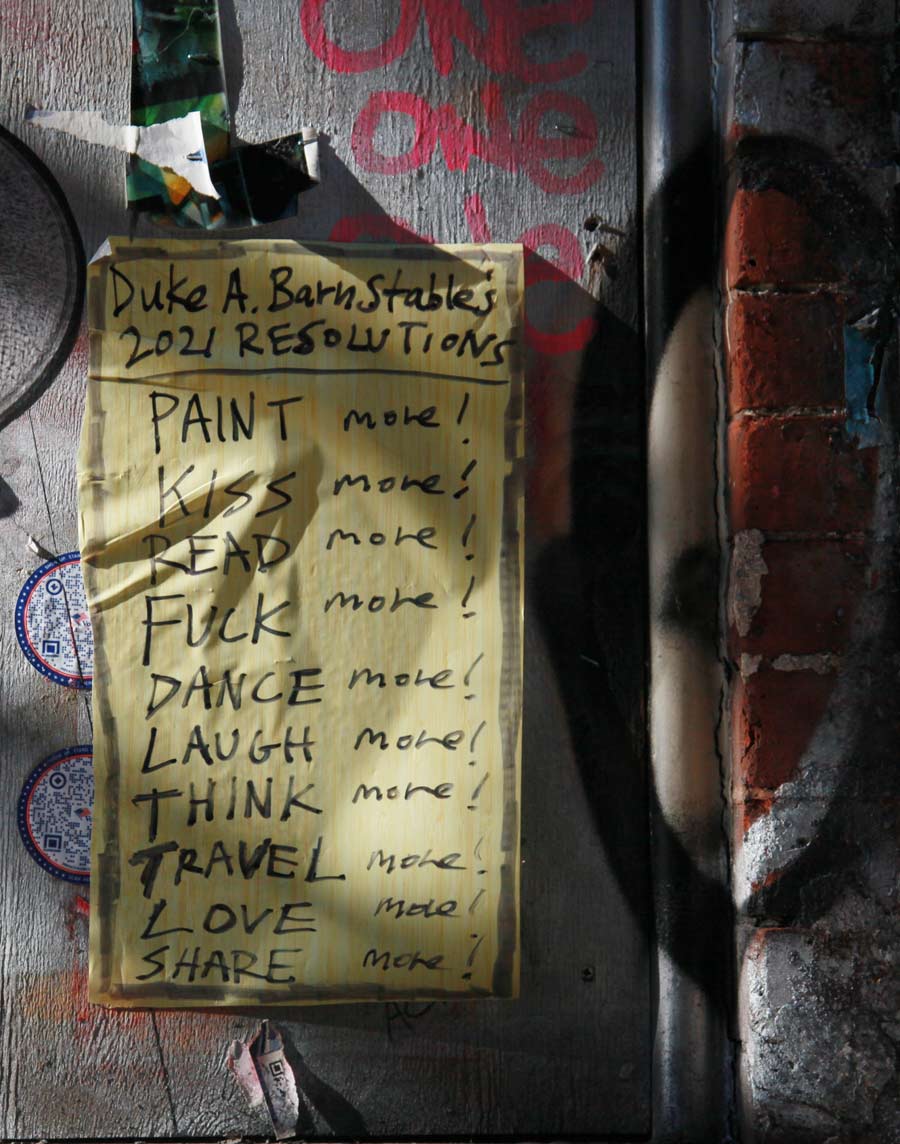 ONE
ONE
Duke A. BarnStable's
2021 RESOLUTIONS
PAINT more!
KISS more!
READ more!
FUCK more!
DANCE more!
LAUGH more!
THINK more!
TRAVEL more!
LOVE more!
SHARE more!